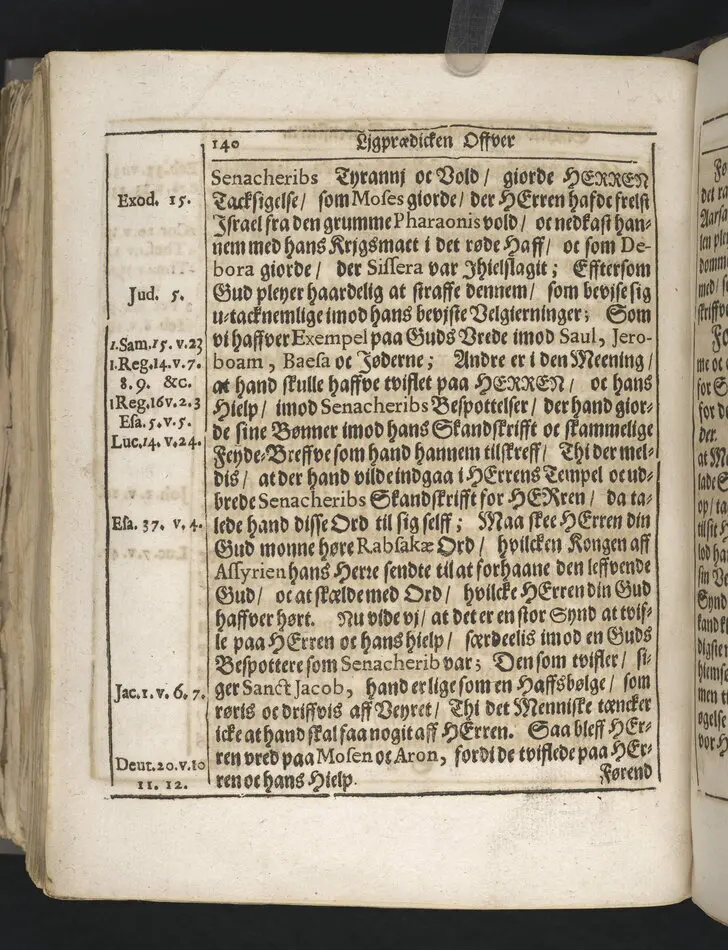 140 Ljgprædicken Offver
Senacheribs Tyrannj oc Vold / giorde HERREN
Exod. 15. Tacksigelse / som Moses giorde / der HErren hafde frelst
Israel fra den grumme Pharaonis vold / oc nedkast han-
nem med hans Krjgsmact i det røde Haff / oc som De-
bora giorde / der Sissera var Jhielslagit ; Efftersom
Jud. 5. Gud plejer haardelig at straffe dennem / som bevjse sig
u-tacknemlige imod hans bevjste Velgierninger ; Som
1.Sam.15.v.23 vi haffver Exempel paa Guds Vrede imod Saul, Jero-
1.Reg.14.v.7. boam, Baesa oc Jøderne ; Andre er i den Meening /
8. 9. &c. at hand skulle haffve tviflet paa HERREN / oc hans
1Reg.16v.2.3 Hielp / imod Senacheribs Bespottelser / der hand gior-
Esa.5.v.5. de sine Bønner imod hans Skandskrifft oc skammelige
Luc.14.v.24. Fejde-Breffve som hand hannem tilskreff / Thi der mel-
dis / at der hand vilde indgaa i HErrens Tempel oc ud-
brede Senacheribs Skandskrifft for HERren / da ta-
Esa. 37. v. 4. lede hand disse Ord til sig selff ; Maa skee HErren din
Gud monne høre Rabsakæ Ord / hvilcken Kongen aff
Assyrien hans Herre sendte til at forhaane den leffvende
Gud / oc at skælde med Ord / hvilcke HErren din Gud
haffver hørt. Nu vide vj / at det er en stor Synd at tvif-
le paa HErren oc hans hielp / særdeelis imod en Guds
Bespottere som Senacherib var ; Den som tvifler / si-
Jac.1.v.6.7. ger Sanct Jacob, hand er lige som en Haffsbølge / som
røris oc driffvis aff Veyret / Thi det Menniske tæncker
icke at hand skal faa nogit aff HErren. Saa bleff HEr-
Deut.20.v.10 ren vred paa Mosen oc Aron, fordi de tviflede paa HEr-
11. 12. ren oc hans Hielp. Førend